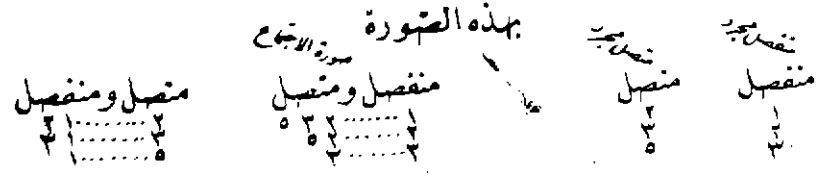 بهذه الصورة
منفصل مجرد
متصل مجرد
صورة الاجتماع
منفصل
متصل
منفصل ومتصل
متصل ومنفصل
١
٢
٣
٢
٣
٥
١ ...... ٢ ٣ ٥
٢ ...... ٣ ٥
٣ ...... ٢
٢ ...... ١ ٣
٣ ...... ١ ٣
٥ ...... ١